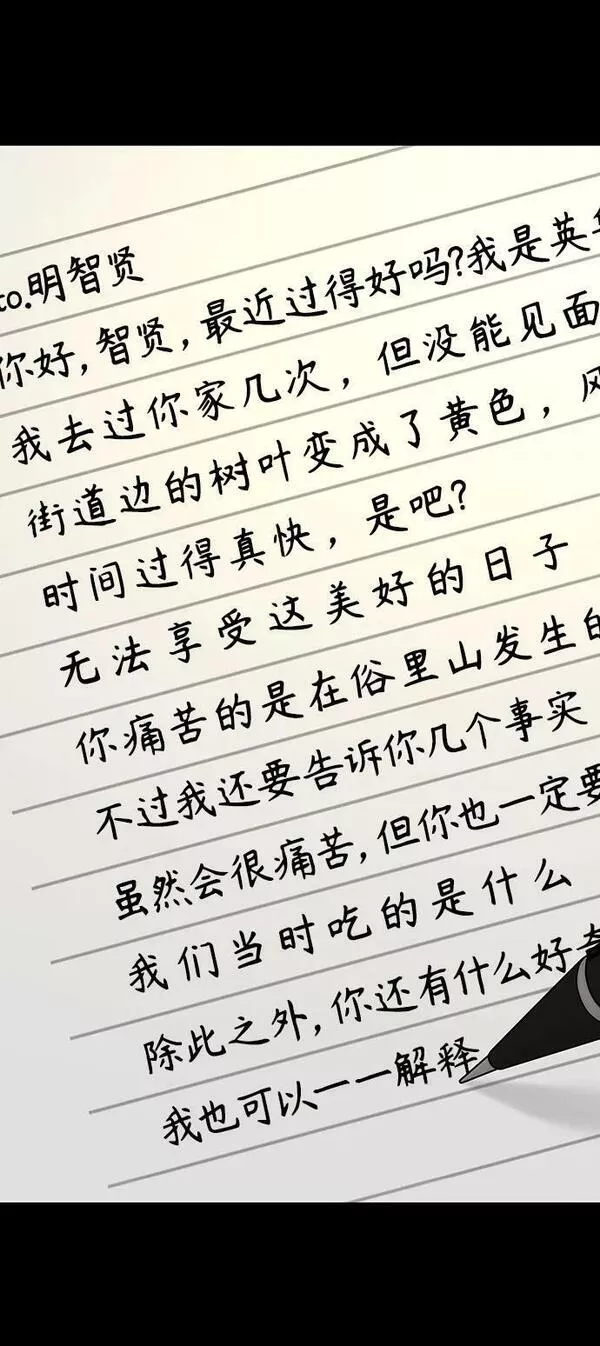 to.明智贤
你好，智贤，最近过得好吗？我是英
我去过你家几次，但没能见面
街道边的树叶变成了黄色，风
时间过得真快，是吧？
无法享受这美好的日子
你痛苦的是在俗里山发生的
不过我还要告诉你几个事实
虽然会很痛苦，但你也一定要
我们当时吃的是什么
除此之外，你还有什么好奇
我也可以一一解释